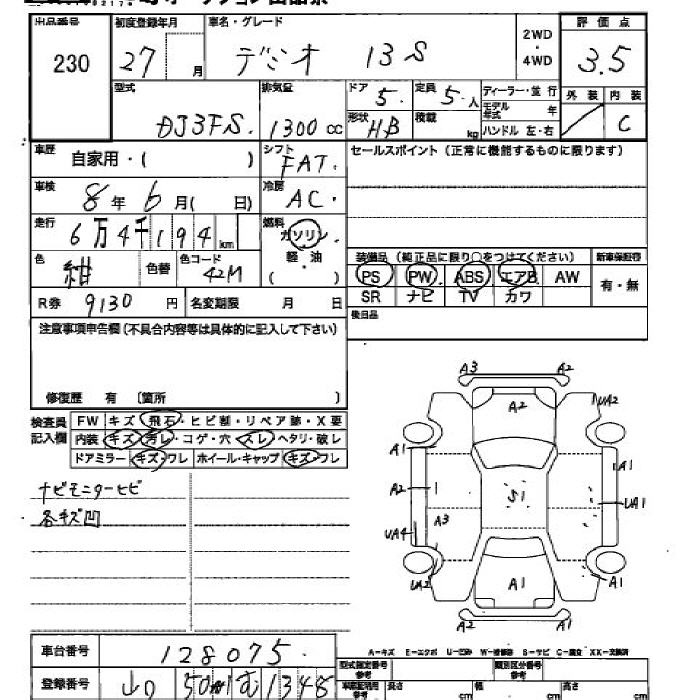 出品番号 初度登録年月 車名・グレード 2WD・4WD 評価点
230 27 月 デミオ 13S 3.5
型式 排気量 ドア 定員 ディーラー・並行 外装 内装
DJ3FS. 1300 cc 5. 5. 人 モデル年式 年 C
形状 HB 積載 kg ハンドル 左・右
車歴 自家用・( ) シフト FAT. セールスポイント(正常に機能するものに限ります)
車検 8年 6月( 日) 冷房 AC.
走行 6万4千194km 燃料 ガソリン・軽・油( )
色 紺 色替 色コード 42M 装備品(純正品に限り○をつけてください) 新車保証書
PS PW ABS エアB AW 有・無
SR ナビ TV カワ
R券 9130 円 名変期限 月 日 後日品
注意事項申告欄(不具合内容等は具体的に記入して下さい)
修復歴 有 〔箇所 〕
検査員記入欄 FW キズ・飛石・ヒビ割・リペア跡・X要
内装 キズ・汚レ・コゲ・穴・スレ・ヘタリ・破レ
ドアミラー キズ・ワレ ホイール・キャップ キズ・フレ
ナビモニターヒビ
各キズ凹
A3 A2
A2 UA2
A1 A1
A2 S1 UA1
A3
UA4
UA2 A1 A1
A2 A1
A-キズ E-エクボ U-凹み W-補修跡 S-サビ C-腐食 XX-交換済
車台番号 128075.
型式指定番号 参考 類別区分番号 参考
登録番号 山口 501 む 1348
長さ cm 幅 cm 高さ cm